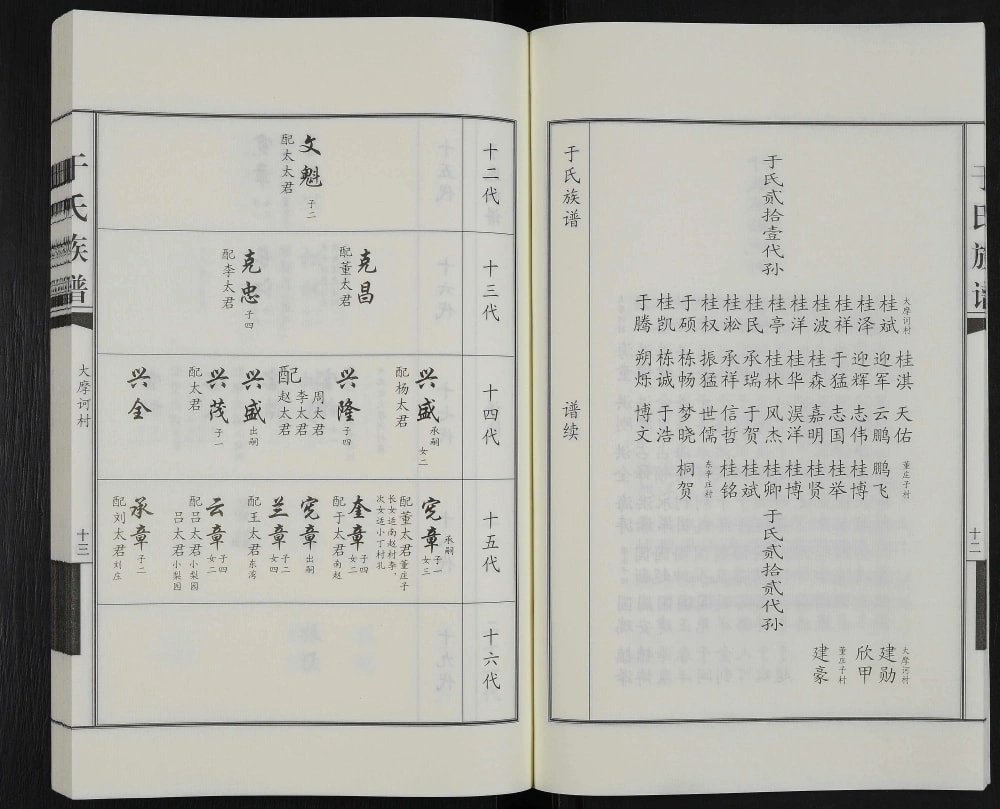 于氏族谱
十二
于氏贰拾壹代孙
大摩诃村
桂斌
桂泽
桂祥
桂波
桂洋
桂亭
桂民
桂淞
桂权
于硕
桂凯
于腾
桂淇
迎军
迎辉
于猛
桂森
桂华
桂林
承瑞
承祥
振猛
栋畅
栋诚
朔烁
天佑
云鹏
志伟
志国
嘉明
淏洋
风杰
于贺
信哲
世儒
梦晓
于浩
博文
董庄子村
鹏飞
桂博
桂举
桂贤
桂博
桂卿
桂斌
桂铭
东辛庄村
桐贺
于氏贰拾贰代孙
大摩诃村
建勋
欣甲
董庄子村
建豪
于氏族谱
谱续
十二代
文魁
子二
配太太君
十三代
克昌
配董太君
克忠
子四
配李太君
十四代
兴盛
承嗣
女二
配杨太君
兴隆
子四
配
周太君
李太君
赵太君
兴盛
出嗣
兴茂
子一
配太君
兴全
十五代
宪章
承嗣
子一
女三
配董太君董庄子
长女适南赵村李,
次女适小丁村孔
奎章
子四
女二
配于太君南赵
宪章
出嗣
兰章
子二
女四
配王太君东湾
云章
子四
女二
配吕太君小梨园
吕太君小梨园
承章
子二
配刘太君刘庄
十六代
于氏族谱
大摩诃村
十三